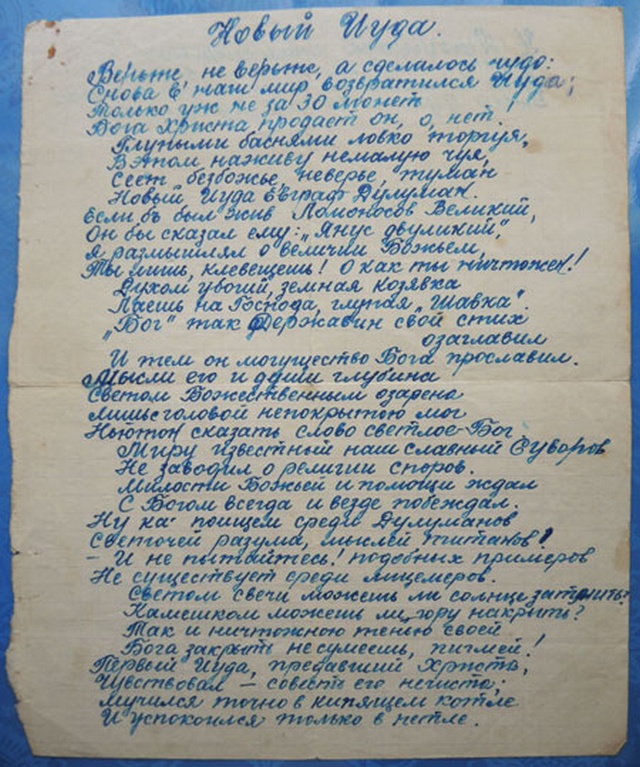 Новый Иуда.
Верьже, не верьже, а сделалось чудо:
Снова в наш мир возвратился Иуда;
Только уж не за 30 монет
Бога Христа продает он, о, нет.
Глупыми баснями ловко торгуя,
В этом наживу немалую чуя,
Сеет безбожье, неверье, туман
Новый Иуда Евграф Дулуман.
Если бъ был жив Ломоносов Великий,
Он бы сказал ему: „Янус двуликий,"
Я размышлял о величии Божьем,
Ты лишь, клевещешь! О как ты ничтожен!
Духом убогий, земная козявка
Лаешь на Господа, глупая „Шавка".
„Бог" так Державин свой стих
озаглавил
И тем он могущество Бога прославил.
Мысли его и души глубина
Светом Божественным озарена
Лишь с головой непокрытою мог
Ньютон сказать слово светлое-Бог
Миру известный наш славный Суворов
Не заводил о религии споров.
Милости Божьей и помощи ждал
С Богом всегда и везде побеждал.
Ну ка поищем среди Дулуманов
Светочей разума, мыслей титанов!
- И не пытайтесь! подобных примеров
Не существует среди лицемеров.
Светом свечи можешь ли солнце затмить?
Камешком можешь ли гору накрыть?
Так и ничтожною тенью своей
Бога закрыть не сумеешь, пигмей!
Первый Иуда, предавший Христа,
Чувствовал — совесть его нечиста;
Мучился точно в кипящем котле
И успокоился только в петле.